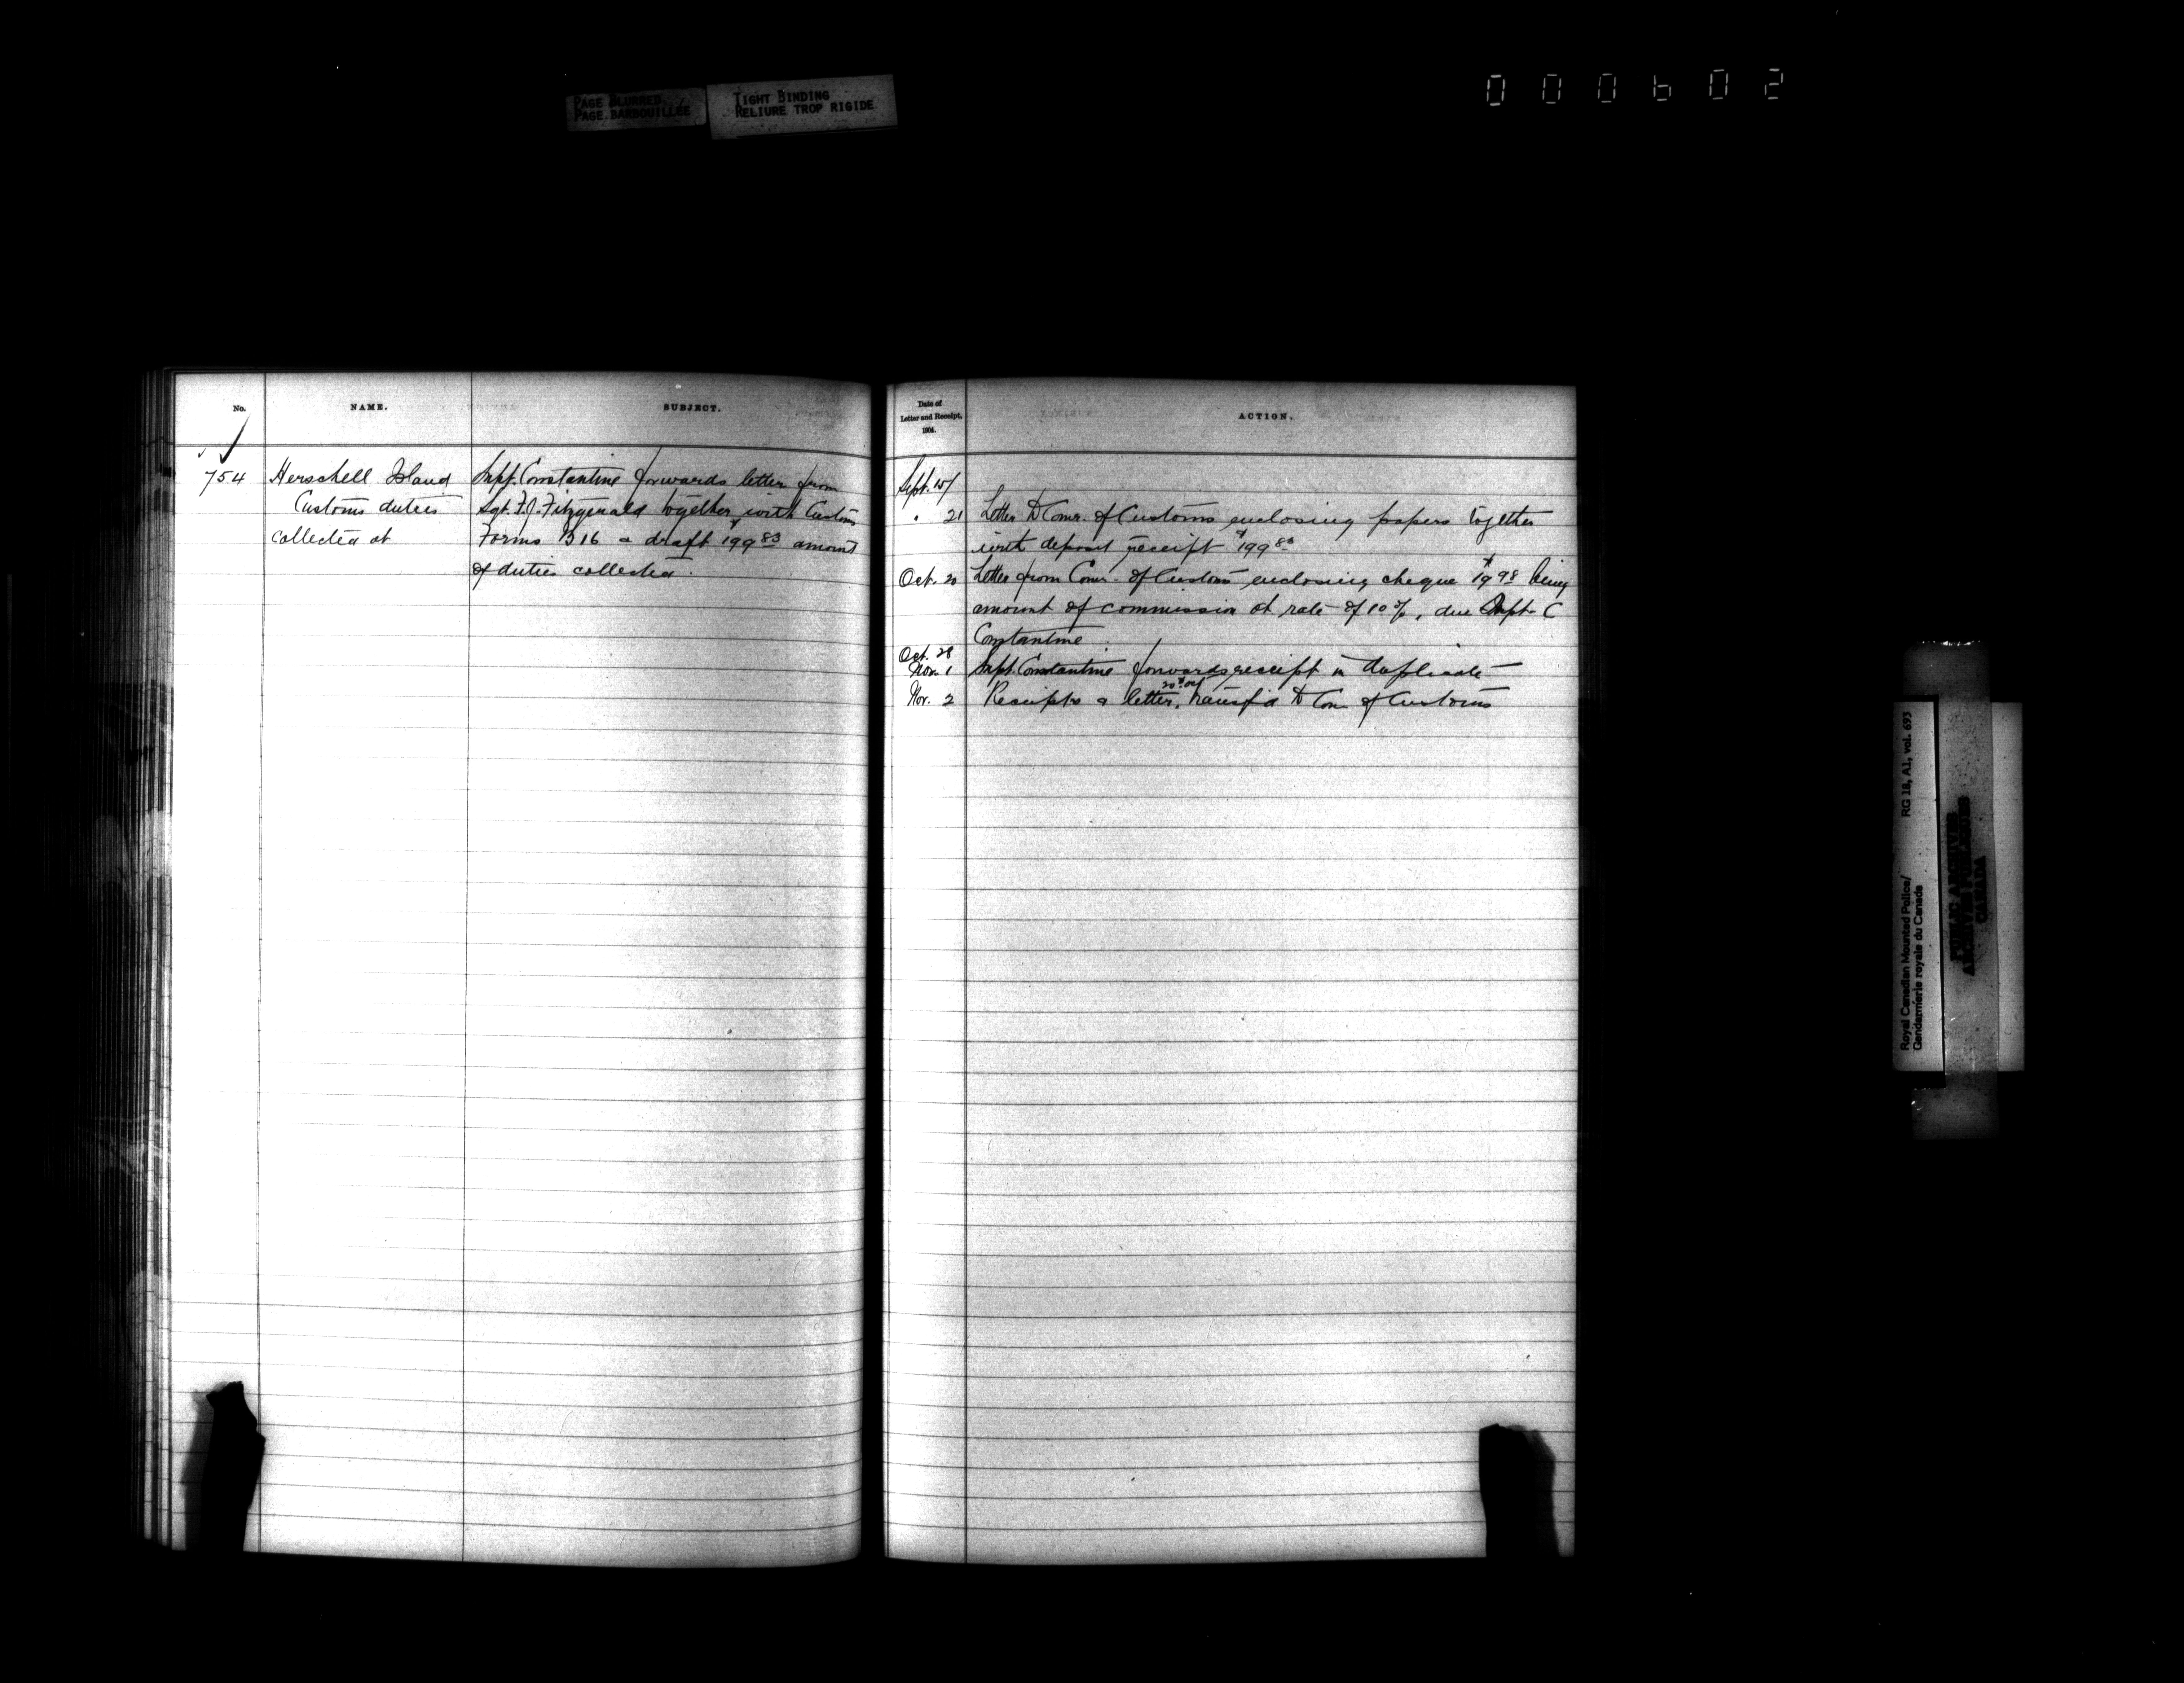 PAGE BLURRED
PAGE BARBOUILLÉE
TIGHT BINDING
RELIURE TROP RIGIDE
000602
No.
NAME.
SUBJECT.
754
Herschell Island
Customs duties
collected at
Supt. Constantine forwards letter from
Sgt. F.J. Fitzgerald together with Customs
Forms B 16 & draft $199 83 amount
of duties collected.
Date of
Letter and Receipt,
1904.
ACTION.
Sept. 15/
" 21 Letter to Comr. of Customs enclosing papers together
with deposit receipt $199 83
Oct. 20 Letter from Comr. of Customs enclosing cheque $19 98 being
amount of commission at rate of 10 %, due Supt. C
Constantine
Oct. 28
Nov. 1 Supt. Constantine forwards receipt in duplicate
20th Oct
Nov. 2 Receipts & letter, transf'd to Com of Customs
Royal Canadian Mounted Police/ RG 18, A1, vol. 693
Gendarmerie royale du Canada
PUBLIC ARCHIVES
ARCHIVES PUBLIQUES
CANADA